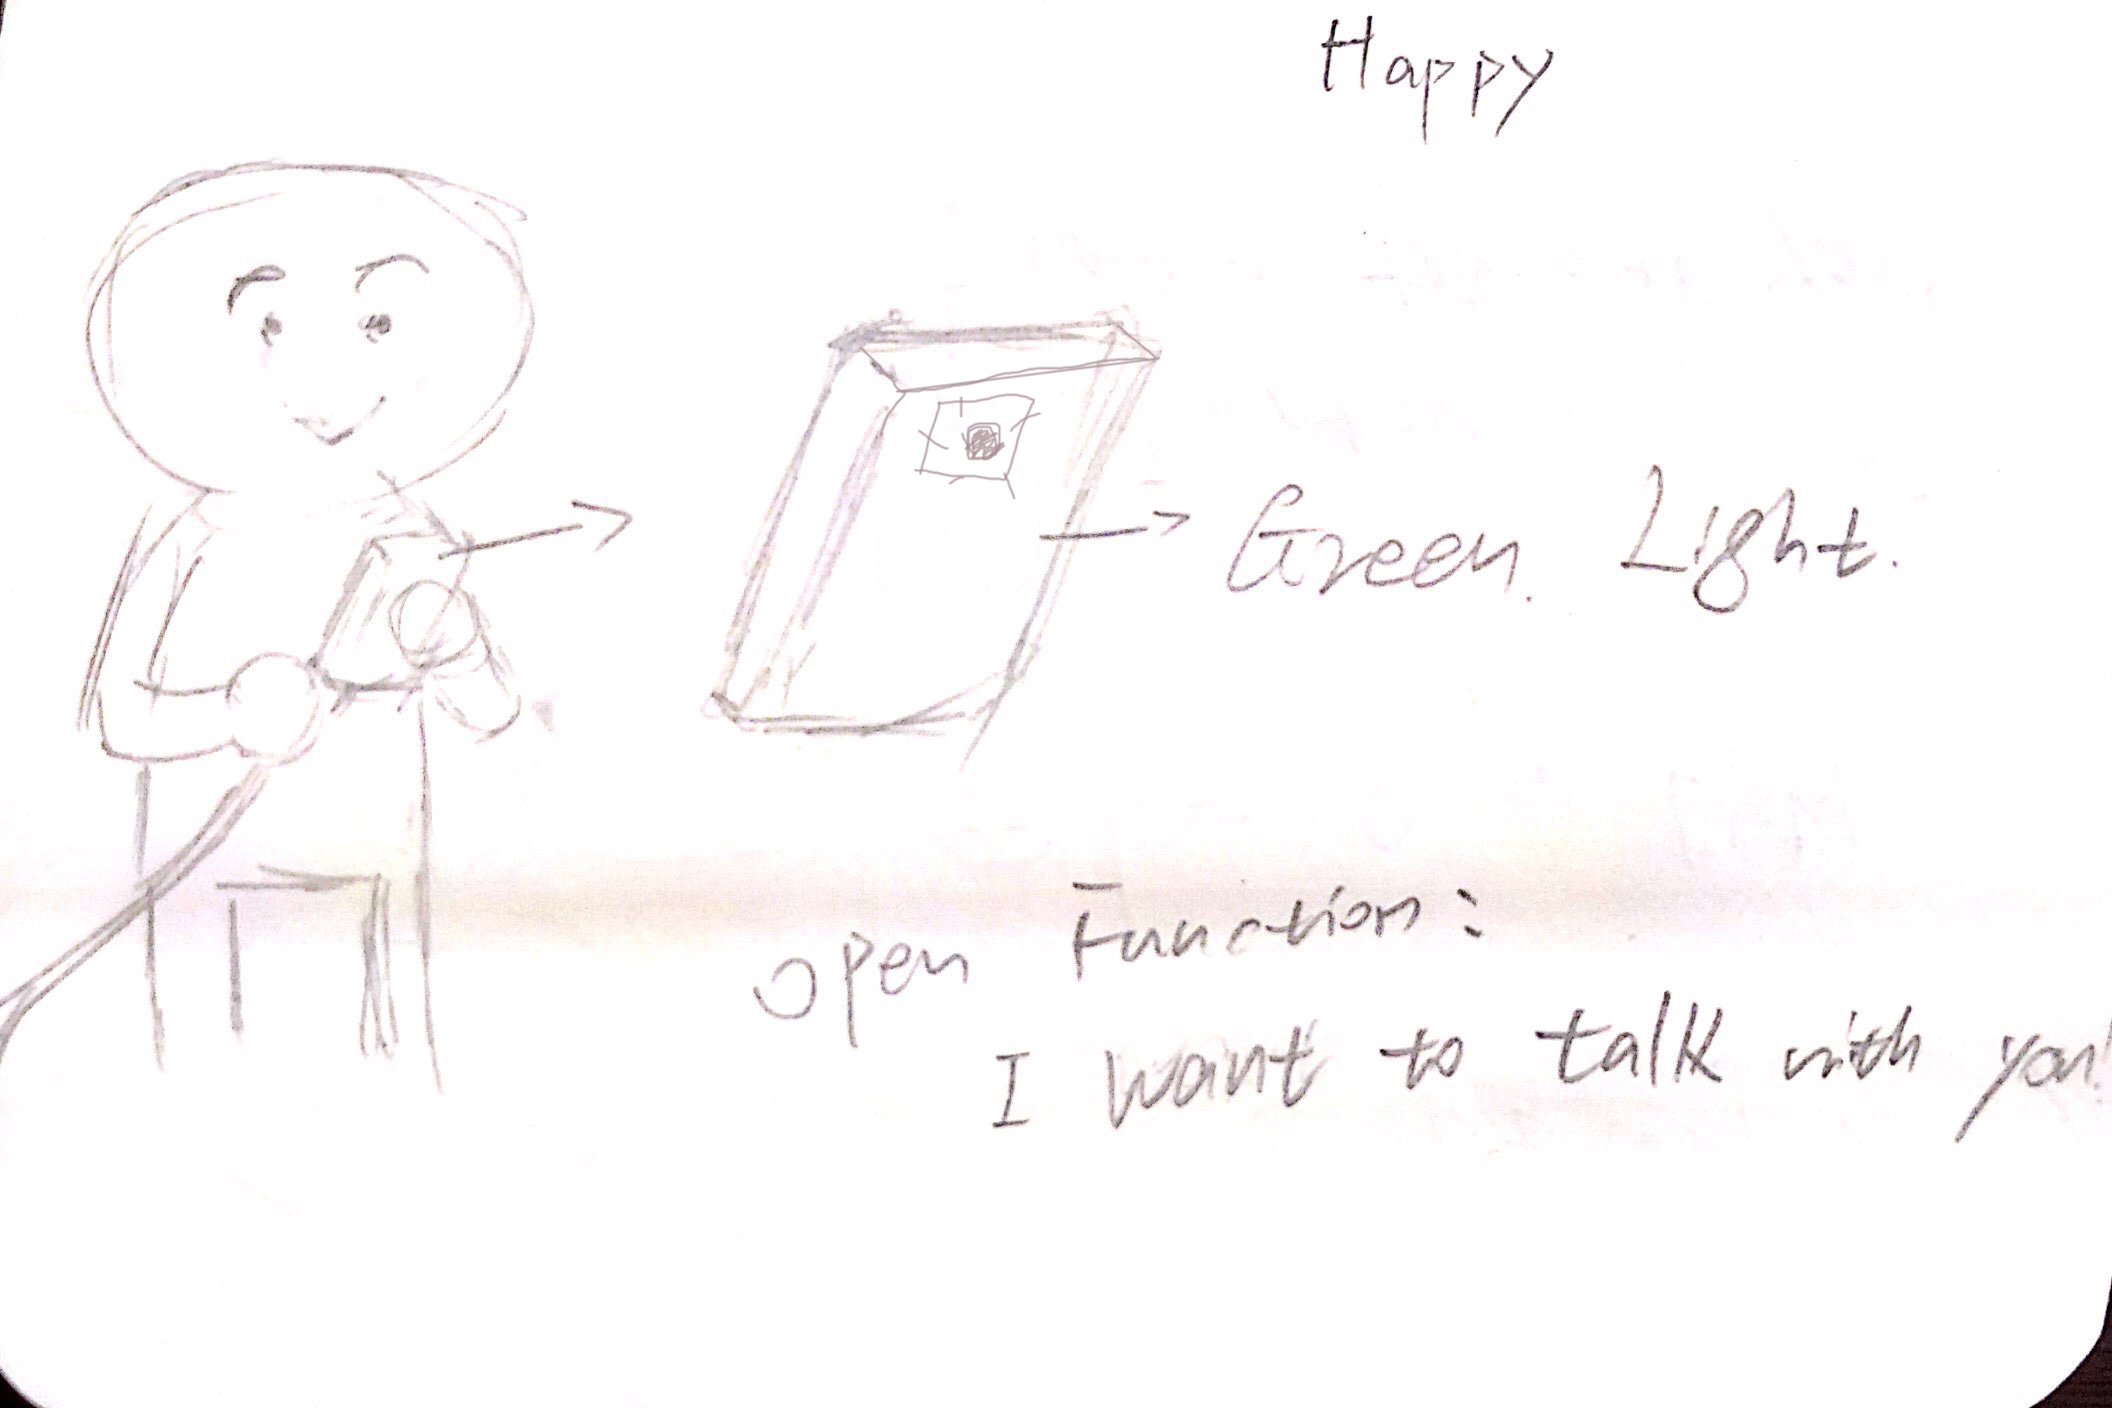 Happy
Green. Light.
open Function:
I want to talk with you!